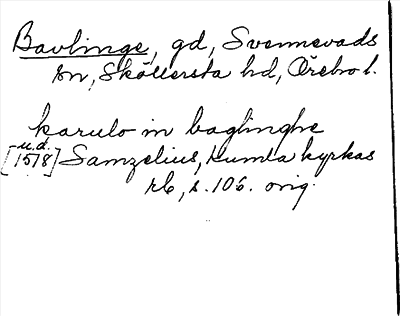 Bavlinge, gd, Svennevads
sn, Sköllersta hd, Örebro l.
karulo in baglinghe
u.d.
[1518] Samzelius, Kumla kyrkas
rb, s. 106. orig.